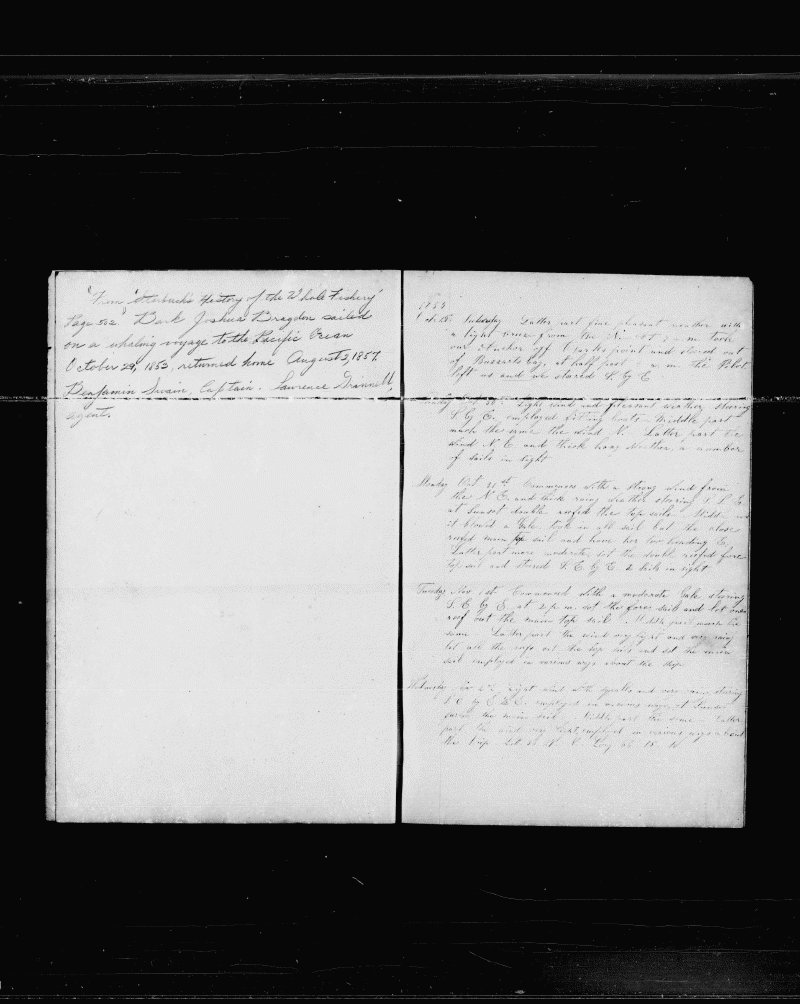 "From "Starbuck's History of the Whale Fishery"
Page 502." Bark Joshua Bragdon sailed
on a whaling voyage to the Pacific Ocean
October 29, 1853, returned home August 2, 1857.
Benjamin Swain, Captain. Lawrence Grinnell,
agent.
1853
Latter part fine pleasant weather with
a light breeze from the took
our Anchor off Clarks point and stood out
of Buzzards Bay, at half past a m the Pilot
left us and we steared S. E
Light wind and pleasant weather steering
employed fitting boats Middle part
much the same the wind N. Latter part the
wind N. E and thick hazy weather, a number
of sails in sight
Monday Oct 31st Commences with a strong wind from
the N. E. and thick rainy weather steering S. S. E.
at Sunset double reefed the top sails Middle part
it blowed a Gale took in all sail but the close
reefed main top sail and hove her too heading E.
Latter part more moderate, set the double reefed fore
top sail and steared S. E. by E 2 sails in sight
Tuesday Nov 1st Commenced with a moderate Gale steering
S. E. by E. at 2 p. m. set the fore sail and let one
reef out the main top sail Middle part much the
same Latter part the wind very light and very rainy
let all the reefs out the top sails and set the main
sail employed in various ways about the ship
Wednesday Nov 2nd Light wind with squalls and very rainy steering
employed in various ways, at Sunset
the main sail Middle part the same Latter
part the wind very light, employed in various ways about
the ship Lat N. Long